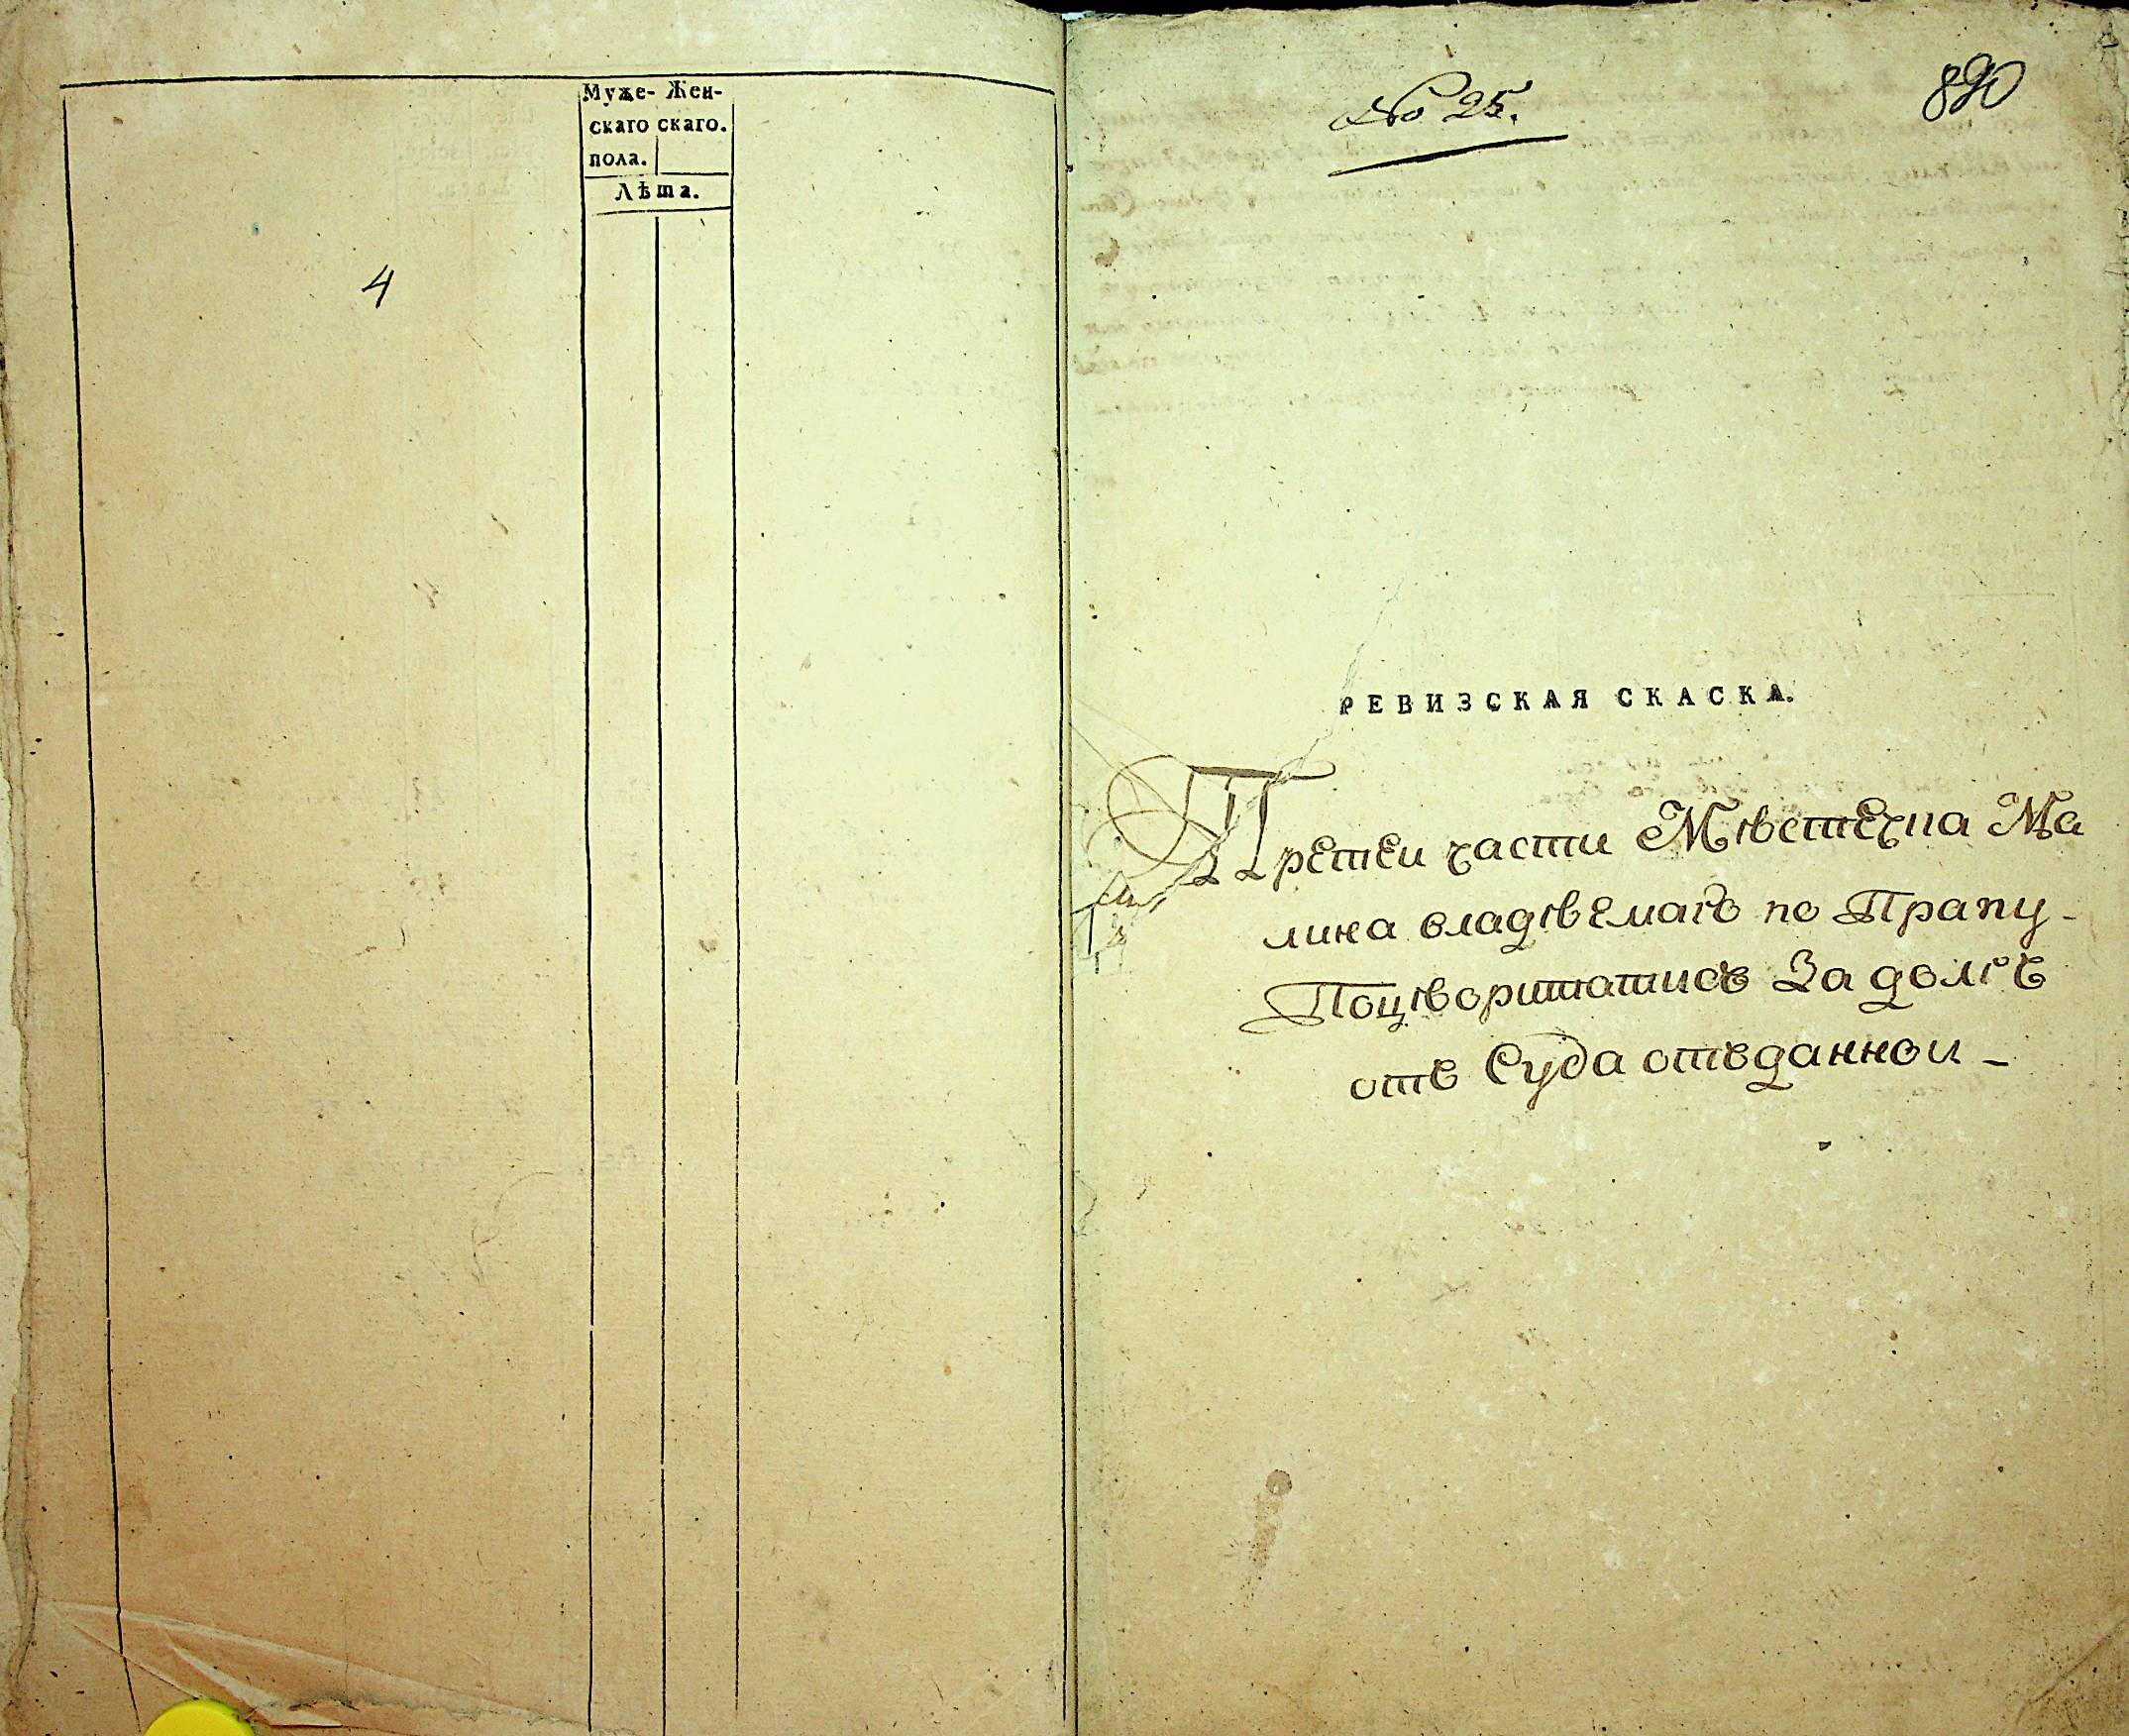 Муже- Жен-
скаго скаго.
пола.
Лѣта.
4
№ 25.
890
РЕВИЗСКАЯ СКАСКА.
Третеи части Мѣстечка Ма
лика владѣемаго по Трапу-
за долгъ
отъ Суда отъданнои -